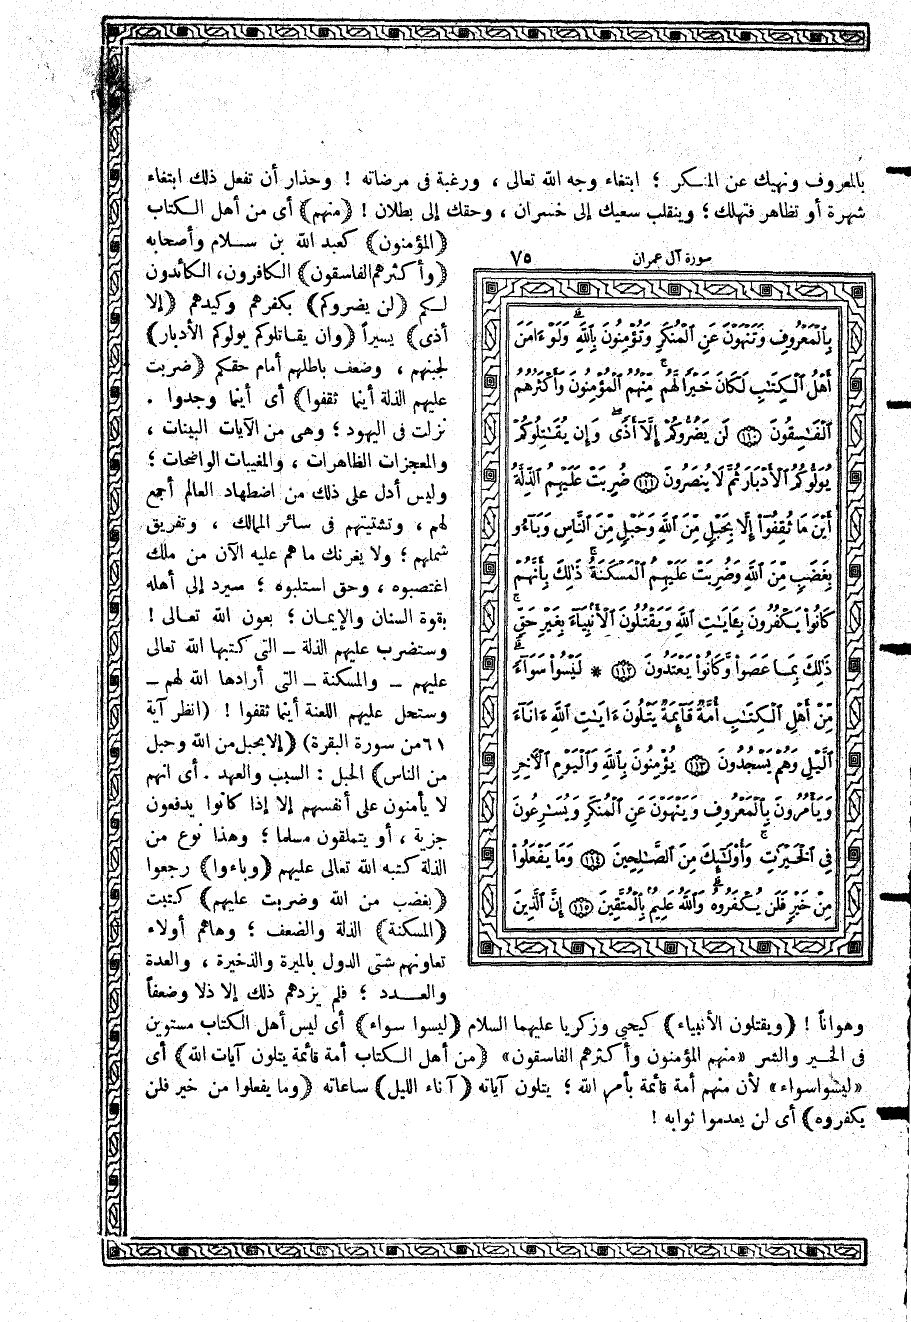 بالمعروف ونهيك عن المنكر ؛ ابتغاء وجه الله تعالى ، ورغبة فى مرضاته ! وحذار أن تفعل ذلك ابتغاء
شهرة أو تظاهر فتهلك ؛ وينقلب سعيك إلى خسران ، وحقك إلى بطلان ! (منهم) أى من أهل الكتاب
(المؤمنون) كعبد الله بن سلام وأصحابه
(وأكثرهم الفاسقون) الكافرون، الكائدون
لكم (لن يضروكم) بكفرهم وكيدهم (إلا
أذى) يسيراً (وان يقاتلوكم يولوكم الأدبار)
لجبنهم ، وضعف باطلهم أمام حقكم (ضربت
عليهم الذلة أينما ثقفوا) أى أينما وجدوا .
نزلت فى اليهود ؛ وهى من الآيات البينات ،
والمعجزات الظاهرات ، والمغيبات الواضحات ؛
وليس أدل على ذلك من اضطهاد العالم أجمع
لهم ، وتشتيتهم فى سائر الممالك ، وتفريق
شملهم ؛ ولا يغرنك ما هم عليه الآن من ملك
اغتصبوه ، وحق استلبوه ؛ سيرد إلى أهله
بقوة السنان والإيمان ؛ بعون الله تعالى !
وستضرب عليهم الذلة ــ التى كتبها الله تعالى
عليهم ــ والمسكنة ــ التى أرادها الله لهم ــ
وستحل عليهم اللعنة أينما ثقفوا ! (انظر آية
٦١ من سورة البقرة) (إلا بحبل من الله وحبل
من الناس) الحبل : السبب والعهد . أى انهم
لا يأمنون على أنفسهم إلا إذا كانوا يدفعون
جزية ، أو يتملقون مسلما ؛ وهذا نوع من
الذلة كتبه الله تعالى عليهم (وباءوا) رجعوا
(بغضب من الله وضربت عليهم) كتبت
(المسكنة) الذلة والضعف ؛ وهاهم أولاء
تعاونهم شتى الدول بالميرة والذخيرة ، والعدة
والعدد ؛ فلم يزدهم ذلك إلا ذلا وضعفاً
سورة آل عمران ٧٥
بِالْمَعْرُوفِ وَتَنْهَوْنَ عَنِ الْمُنكَرِ وَتُؤْمِنُونَ بِاللَّهِ ۗ وَلَوْ ءَامَنَ
أَهْلُ الْكِتَٰبِ لَكَانَ خَيْرًا لَّهُم ۚ مِّنْهُمُ الْمُؤْمِنُونَ وَأَكْثَرُهُمُ
الْفَٰسِقُونَ ١١٠ لَن يَضُرُّوكُمْ إِلَّآ أَذًى ۖ وَإِن يُقَٰتِلُوكُمْ
يُوَلُّوكُمُ الْأَدْبَارَ ثُمَّ لَا يُنصَرُونَ ١١١ ضُرِبَتْ عَلَيْهِمُ الذِّلَّةُ
أَيْنَ مَا ثُقِفُوٓا إِلَّا بِحَبْلٍ مِّنَ اللَّهِ وَحَبْلٍ مِّنَ النَّاسِ وَبَآءُو
بِغَضَبٍ مِّنَ اللَّهِ وَضُرِبَتْ عَلَيْهِمُ الْمَسْكَنَةُ ۚ ذَٰلِكَ بِأَنَّهُمْ
كَانُوا يَكْفُرُونَ بِـَٔايَٰتِ اللَّهِ وَيَقْتُلُونَ الْأَنۢبِيَآءَ بِغَيْرِ حَقٍّ ۚ
ذَٰلِكَ بِمَا عَصَوا وَّكَانُوا يَعْتَدُونَ ١١٢ * لَيْسُوا سَوَآءً ۗ
مِّنْ أَهْلِ الْكِتَٰبِ أُمَّةٌ قَآئِمَةٌ يَتْلُونَ ءَايَٰتِ اللَّهِ ءَانَآءَ
الَّيْلِ وَهُمْ يَسْجُدُونَ ١١٣ يُؤْمِنُونَ بِاللَّهِ وَالْيَوْمِ الْآخِرِ
وَيَأْمُرُونَ بِالْمَعْرُوفِ وَيَنْهَوْنَ عَنِ الْمُنكَرِ وَيُسَٰرِعُونَ
فِي الْخَيْرَٰتِ ۚ وَأُولَٰٓئِكَ مِنَ الصَّٰلِحِينَ ١١٤ وَمَا يَفْعَلُوا
مِنْ خَيْرٍ فَلَن يُكْفَرُوهُ ۗ وَاللَّهُ عَلِيمٌۢ بِالْمُتَّقِينَ ١١٥ إِنَّ الَّذِينَ
وهواناً ! (ويقتلون الأنبياء) كيحي وزكريا عليهما السلام (ليسوا سواء) أى ليس أهل الكتاب مستوين
فى الخير والشر «منهم المؤمنون وأكثرهم الفاسقون» (من أهل الكتاب أمة قائمة يتلون آيات الله) أى
«ليسوا سواء» لأن منهم أمة قائمة بأمر الله ؛ يتلون آياته (آناء الليل) ساعاته (وما يفعلوا من خير فلن
يكفروه) أى لن يعدموا ثوابه !